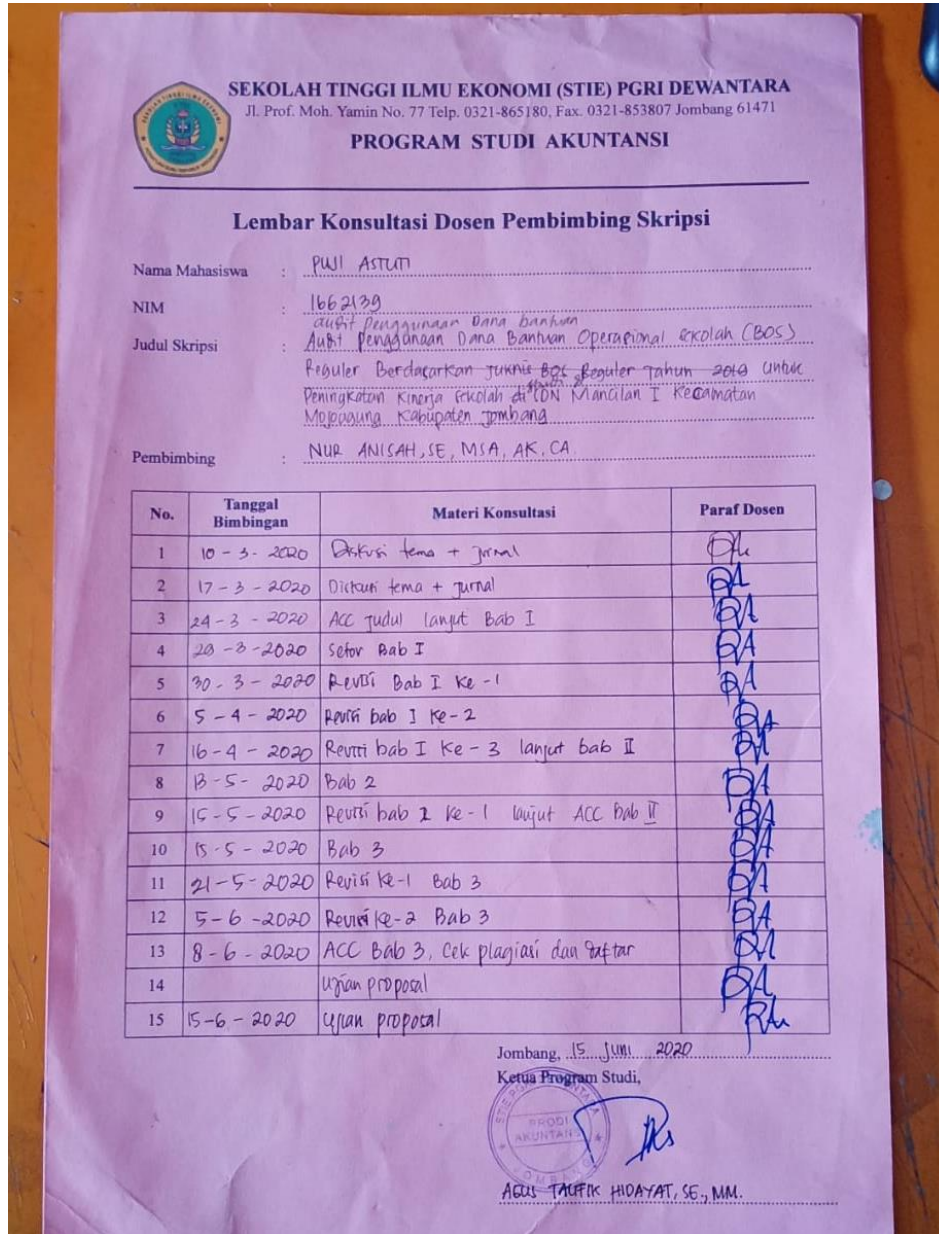 SEKOLAH TINGGI ILMU EKONOMI (STIE) PGRI DEWANTARA
Jl. Prof. Moh. Yamin No. 77 Telp. 0321-865180, Fax. 0321-853807 Jombang 61471
PROGRAM STUDI AKUNTANSI
Lembar Konsultasi Dosen Pembimbing Skripsi
Nama Mahasiswa : PUJI ASTUTI
NIM : 1662139
audit Penggunaan Dana bantuan
Judul Skripsi : Audit Penggunaan Dana Bantuan Operasional Sekolah (BOS)
Reguler Berdasarkan Juknis BOS Reguler Tahun 2019 untuk
Peningkatan Kinerja Sekolah di SDN Mancilan I Kecamatan
Mojoagung Kabupaten Jombang
Pembimbing : NUR ANISAH, SE, MSA, AK, CA
No. Tanggal Bimbingan Materi Konsultasi Paraf Dosen
1 10-3-2020 Diskusi tema + jurnal
2 17-3-2020 Diskusi tema + jurnal
3 24-3-2020 ACC judul lanjut Bab I
4 29-3-2020 Setor Bab I
5 30-3-2020 Revisi Bab I ke-1
6 5-4-2020 Revisi bab I ke-2
7 16-4-2020 Revisi bab I ke-3 lanjut bab II
8 13-5-2020 Bab 2
9 15-5-2020 Revisi bab 2 ke-1 lanjut ACC Bab II
10 15-5-2020 Bab 3
11 21-5-2020 Revisi ke-1 Bab 3
12 5-6-2020 Revisi ke-2 Bab 3
13 8-6-2020 ACC Bab 3, cek plagiasi dan daftar
14 ujian proposal
15 15-6-2020 ujian proposal
Jombang, 15 Juni 2020
Ketua Program Studi,
PRODI
AKUNTANSI
JOMBANG
AGUS TAUFIK HIDAYAT, SE., MM.